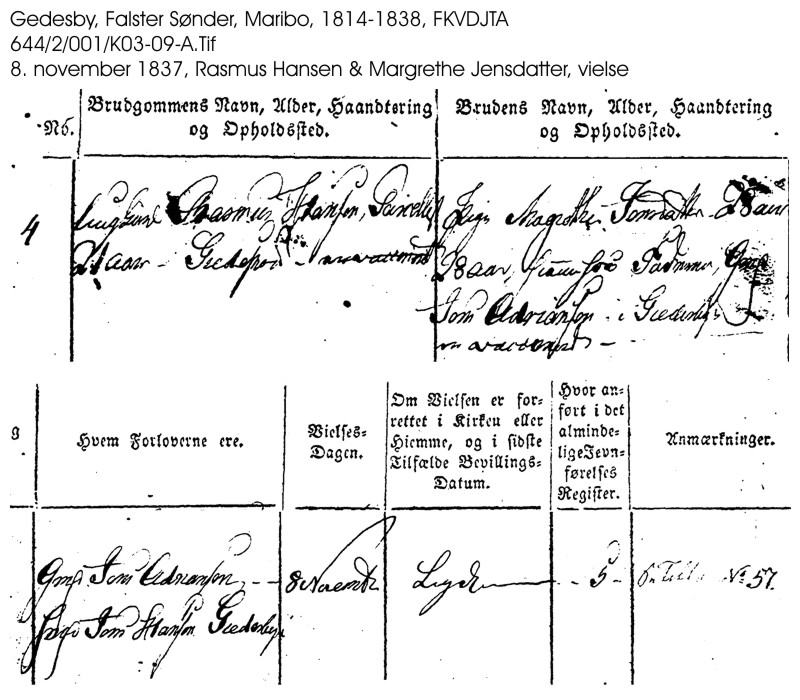 Gedesby, Falster Sønder, Maribo, 1814-1838, FKVDJTA
644/2/001/K03-09-A.Tif
8. november 1837, Rasmus Hansen & Margrethe Jensdatter, vielse
No.
Brudgommens Navn, Alder, Haandtering
og Opholdssted.
Brudens Navn, Alder, Haandtering
og Opholdssted.
4
Rasmus Hansen,
24 Aar -
Pige Magrethe Jensdatter
Aar,
Jens Adriansen i Gjedesby
vaccineret -
g
Hvem Forloverne ere.
Vielses-
Dagen.
Om Vielsen er for-
rettet i Kirken eller
Hiemme, og i sidste
Tilfælde Bevillings-
Datum.
Hvor an-
ført i det
alminde-
lige Jevn-
førelses
Register.
Anmærkninger.
Gmd Jens Adriansen
Jens Hansen Gjedesby
8 Novembr
5
No 57.